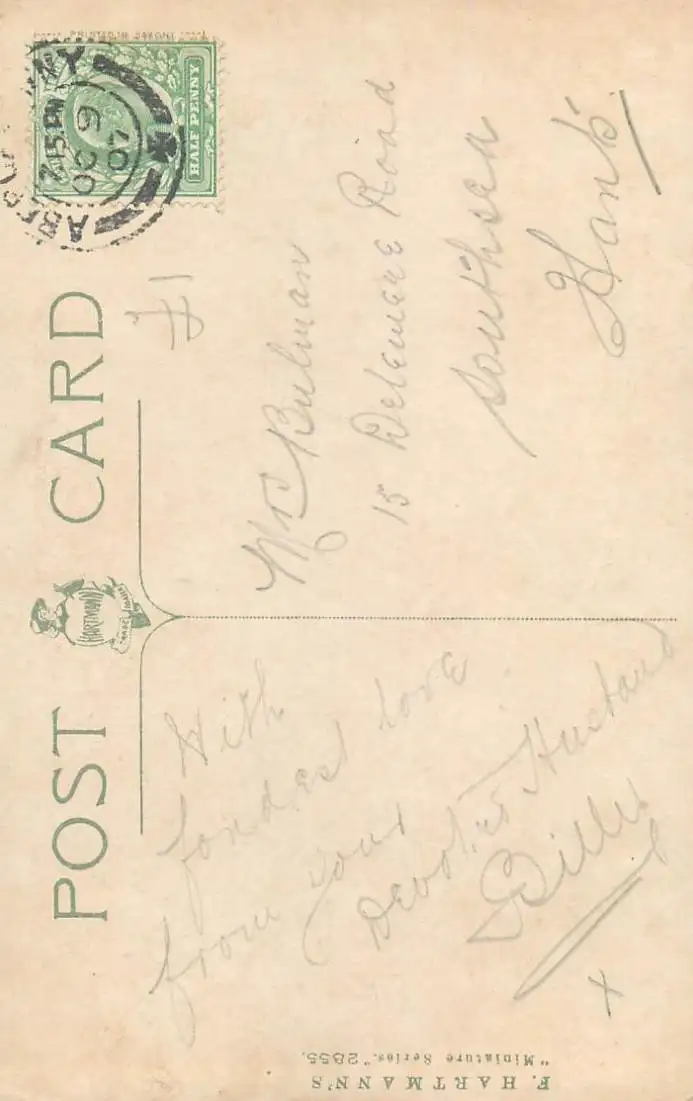 POST CARD
HARTMANN
HALF PENNY
7.15 PM
OC 9
07
£1
With
fondest love
from your
Devoted Husband
Billy
x
Mrs Bulman
15 Delemere Road
Southsea
Hants
F. HARTMANN'S
"Miniature Series." 2855.